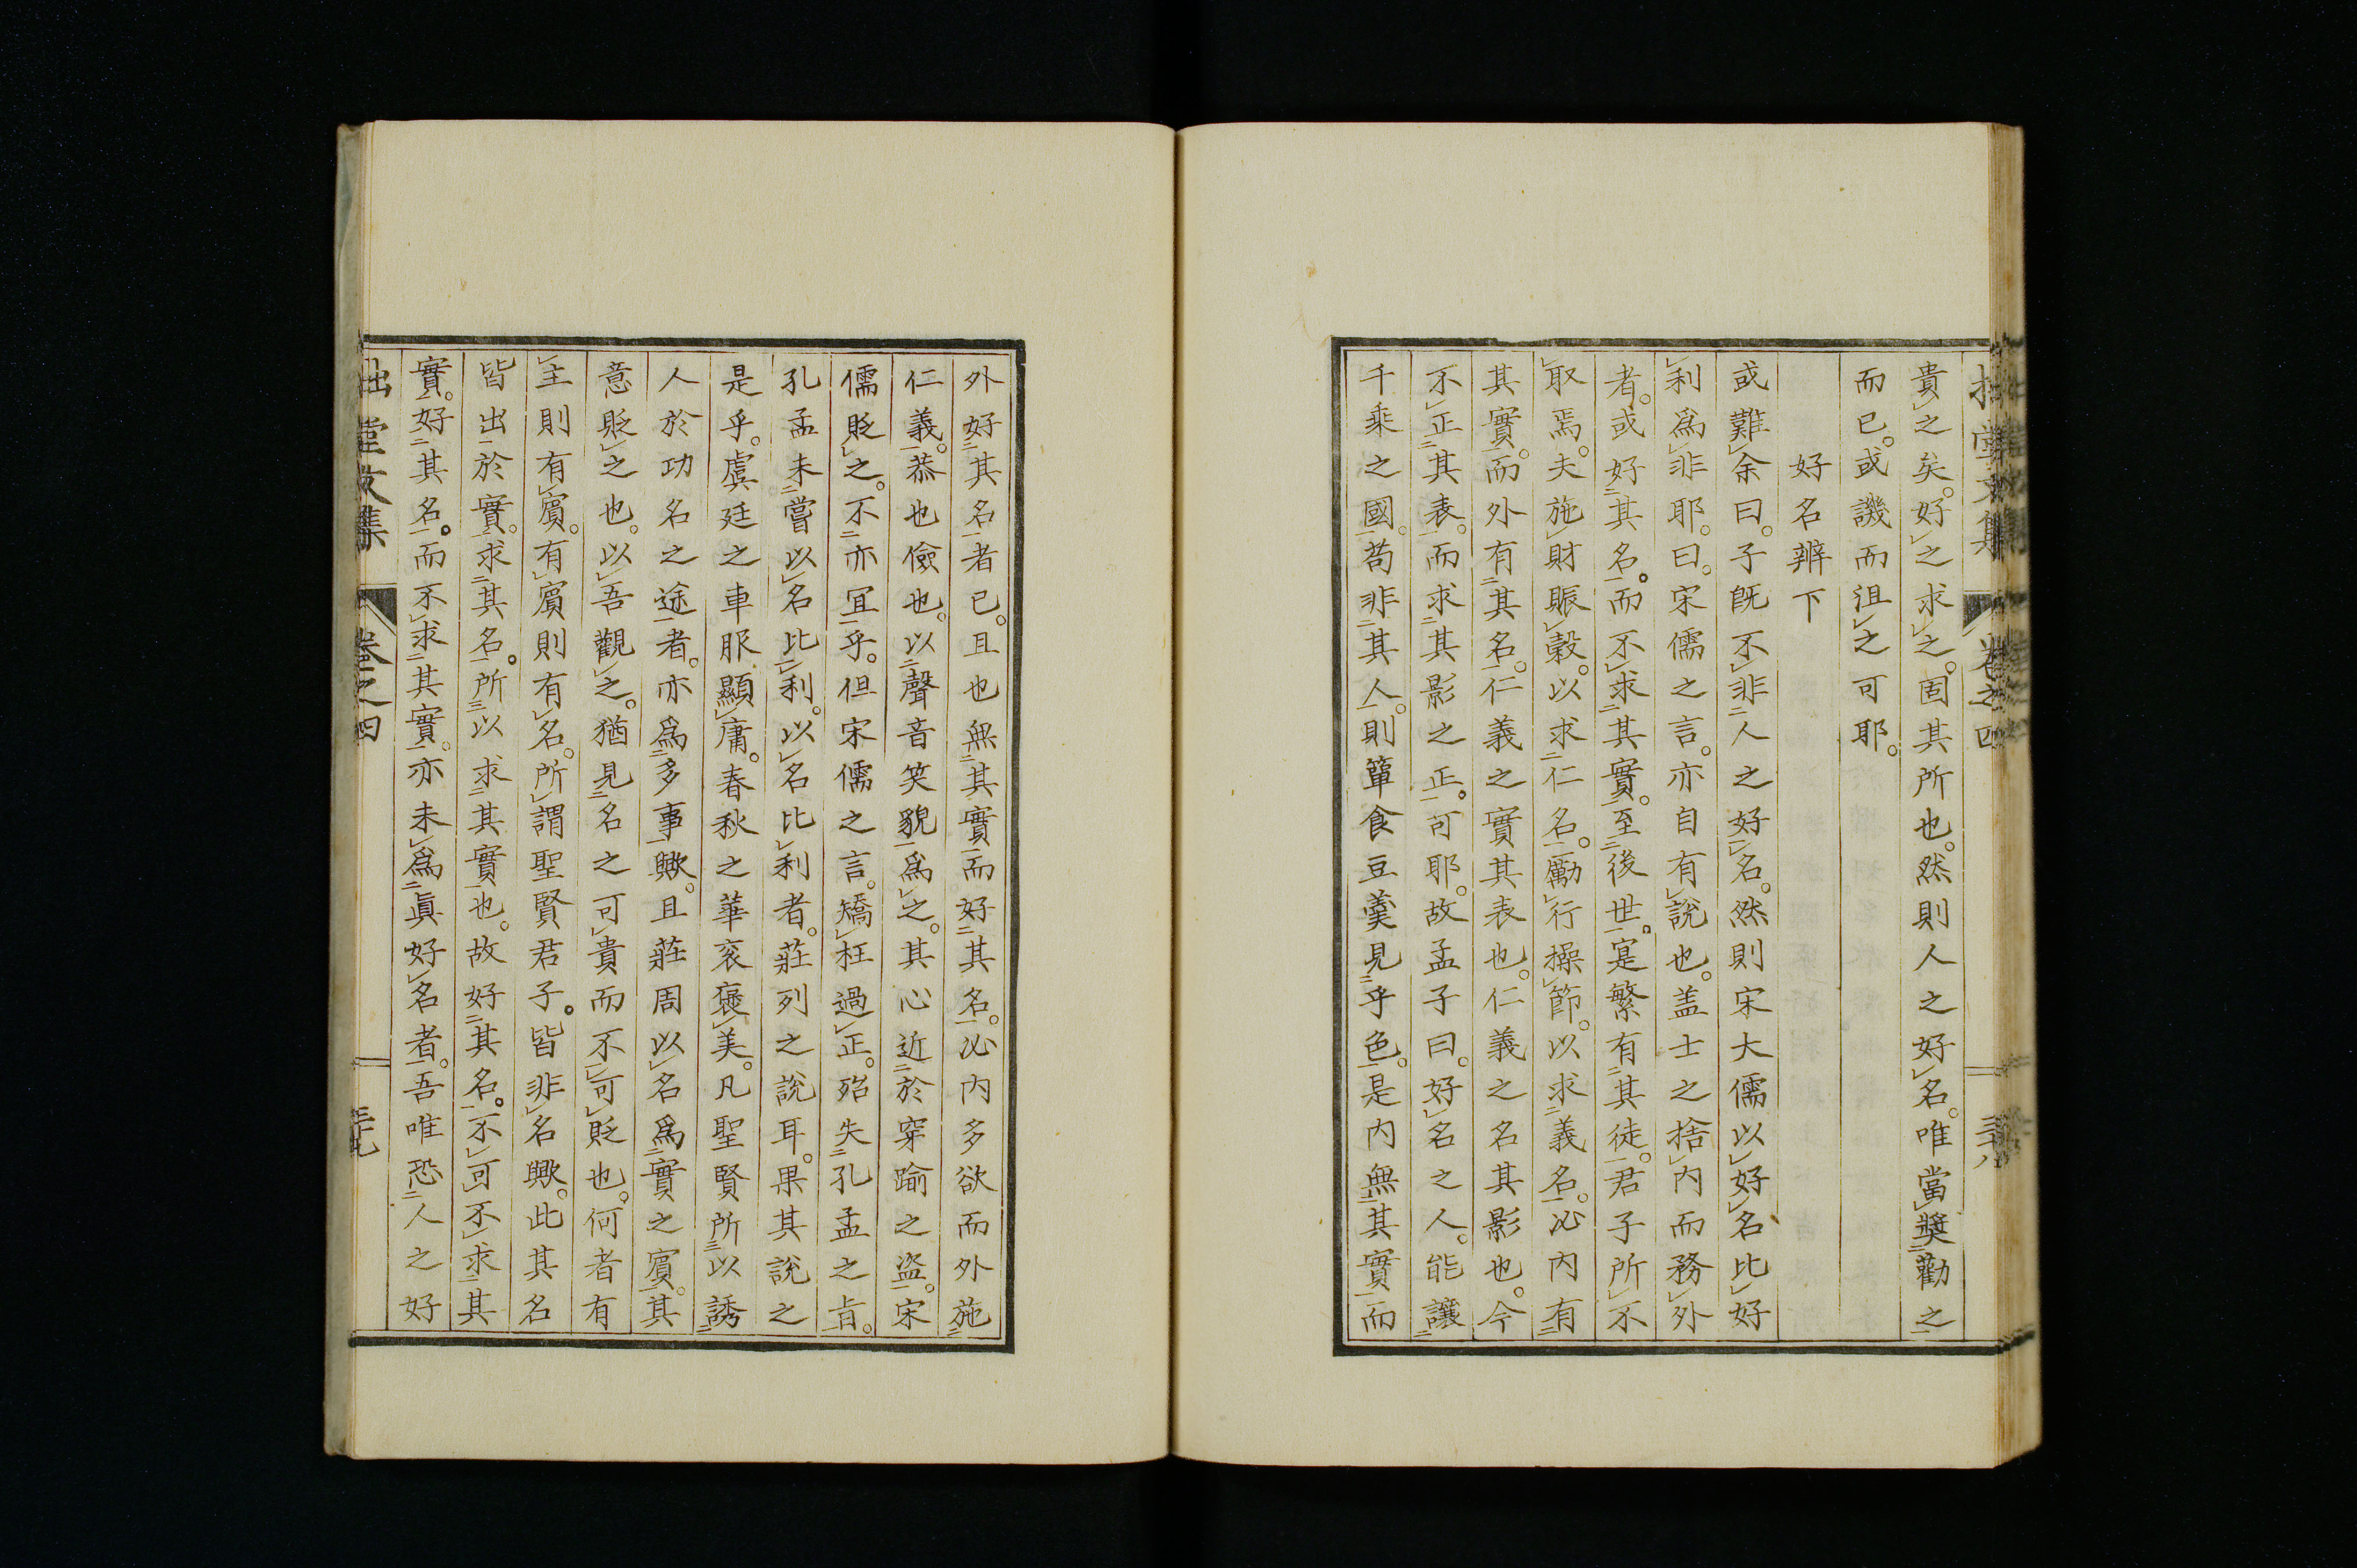 拙堂文集 卷之四 三十八
貴之矣。好之求之。固其所也。然則人之好名。唯當奬勸之
而已。或譏而沮之可耶。
好名辨下
或難余曰。子旣不非人之好名。然則宋大儒以好名比好
利爲非耶。曰。宋儒之言。亦自有說也。盖士之捨內而務外
者。或好其名。而不求其實。至後世。寔繁有其徒。君子所不
取焉。夫施財賑穀。以求仁名。勵行操節。以求義名。必內有
其實。而外有其名。仁義之實其表也。仁義之名其影也。今
不正其表。而求其影之正。可耶。故孟子曰。好名之人。能讓
千乘之國。苟非其人。則簞食豆羹見乎色。是內無其實而
外好其名者已。且也無其實而好其名。必內多欲而外施
仁義。恭也儉也。以聲音笑貌爲之。其心近於穿踰之盜。宋
儒貶之。不亦冝乎。但宋儒之言。矯枉過正。殆失孔孟之旨。
孔孟未嘗以名比利。以名比利者。莊列之說耳。果其說之
是乎。虞廷之車服顯庸。春秋之華衮褒美。凡聖賢所以誘
人於功名之途者。亦爲多事歟。且莊周以名爲實之賓。其
意貶之也。以吾觀之。猶見名之可貴而不可貶也。何者有
主則有賓。有賓則有名。所謂聖賢君子。皆非名歟。此其名
皆出於實。求其名。所以求其實也。故好其名。不可不求其
實。好其名。而不求其實。亦未爲眞好名者。吾唯恐人之好
拙堂文集 卷之四 三十九